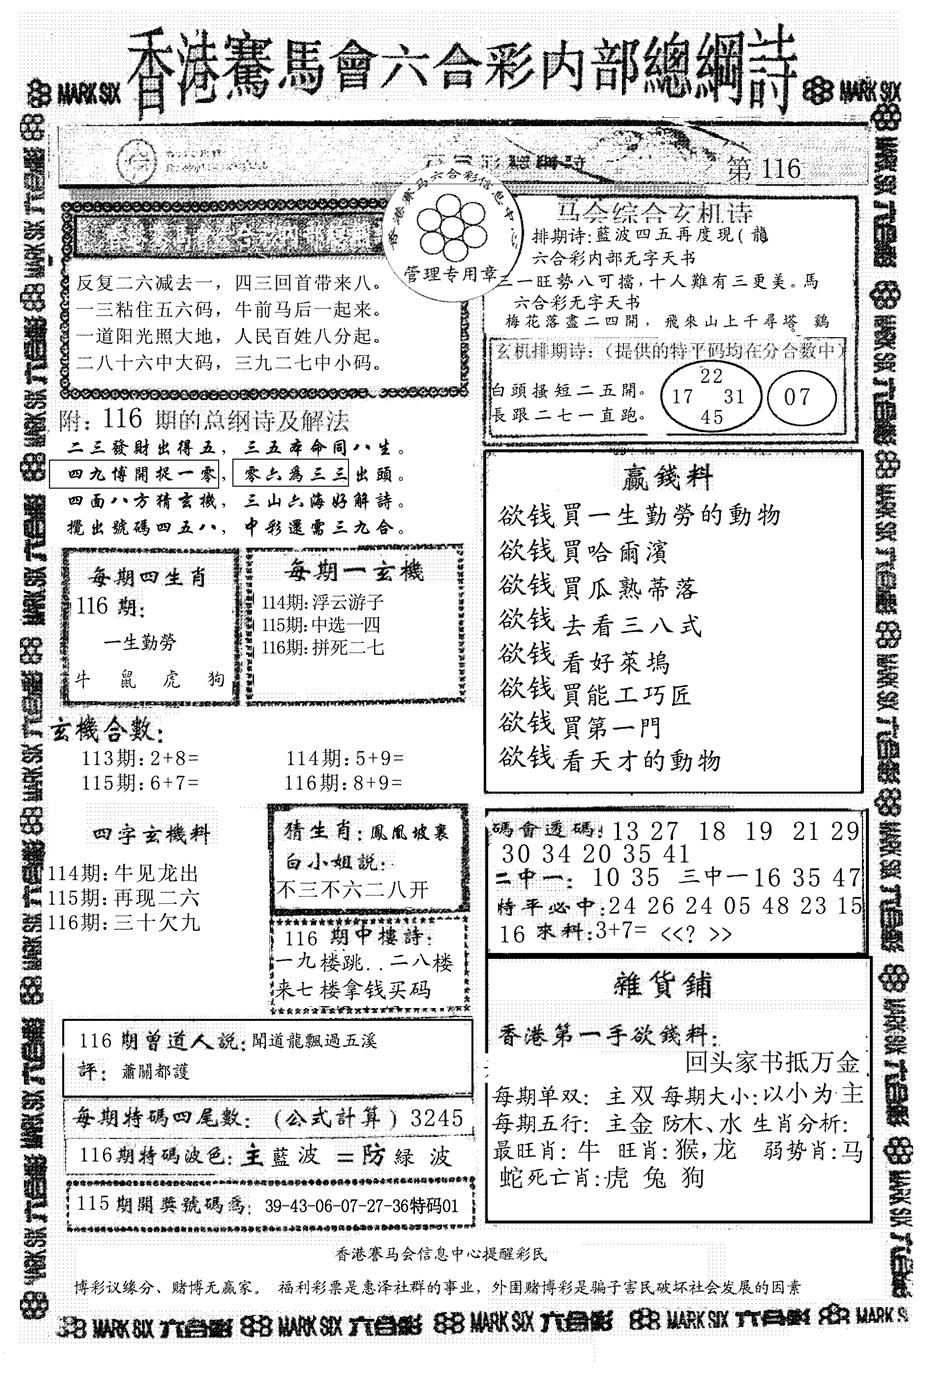 香港賽馬會六合彩内部總綱詩
MARK SIX
MARK SIX
第 116
香港賽马六合彩信息中心
管理专用章
反复二六减去一，四三回首带来八。
一三粘住五六码，牛前马后一起来。
一道阳光照大地，人民百姓八分起。
二八十六中大码，三九二七中小码。
马会综合玄机诗
排期诗:藍波四五再度現(龍
六合彩内部无字天书
三一旺勢八可擋,十人難有三更美。馬
六合彩无字天书
梅花落盡二四開，飛來山上千尋塔。鷄
玄机排期诗:（提供的特平码均在分合数中）
白頭搔短二五開。
長跟二七一直跑。
22
17 31
45
07
附: 116 期的总纲诗及解法
二三發財出得五，三五本命同八生。
四九博開捉一零，零六為三三出頭。
四面八方猜玄機，三山六海好解詩。
攪出號碼四五八，中彩還需三九合。
每期四生肖
116 期:
一生勤勞
牛 鼠 虎 狗
每期一玄機
114期:浮云游子
115期:中选一四
116期:拼死二七
玄機合數:
113期:2+8= 114期:5+9=
115期:6+7= 116期:8+9=
四字玄機料
114期:牛见龙出
115期:再现二六
116期:三十欠九
猜生肖:鳳凰坡裏
白小姐説:
不三不六二八开
116 期中樓詩:
一九楼跳..二八楼
来七楼拿钱买码
贏錢料
欲钱買一生勤勞的動物
欲钱買哈爾濱
欲钱買瓜熟蒂落
欲钱去看三八式
欲钱看好萊塢
欲钱買能工巧匠
欲钱買第一門
欲钱看天才的動物
碼會透碼:13 27 18 19 21 29
30 34 20 35 41
二中一: 10 35 三中一16 35 47
特平必中:24 26 24 05 48 23 15
16 來料:3+7= <<? >>
雜貨鋪
香港第一手欲錢料:
回头家书抵万金
每期单双: 主双 每期大小:以小为主
每期五行: 主金 防木、水 生肖分析:
最旺肖: 牛 旺肖:猴,龙 弱势肖:马
蛇死亡肖:虎 兔 狗
116 期曾道人説:聞道龍飄過五溪
評: 蕭關都護
每期特碼四尾數:（公式計算）3245
116期特碼波色:主藍波 =防緑波
115期開獎號碼爲: 39-43-06-07-27-36特码01
香港賽马会信息中心提醒彩民
博彩议缘分、赌博无赢家。 福利彩票是惠泽社群的事业，外围赌博彩是骗子害民破坏社会发展的因素
MARK SIX 六合彩 MARK SIX 六合彩 MARK SIX 六合彩 MARK SIX 六合彩 MARK SIX